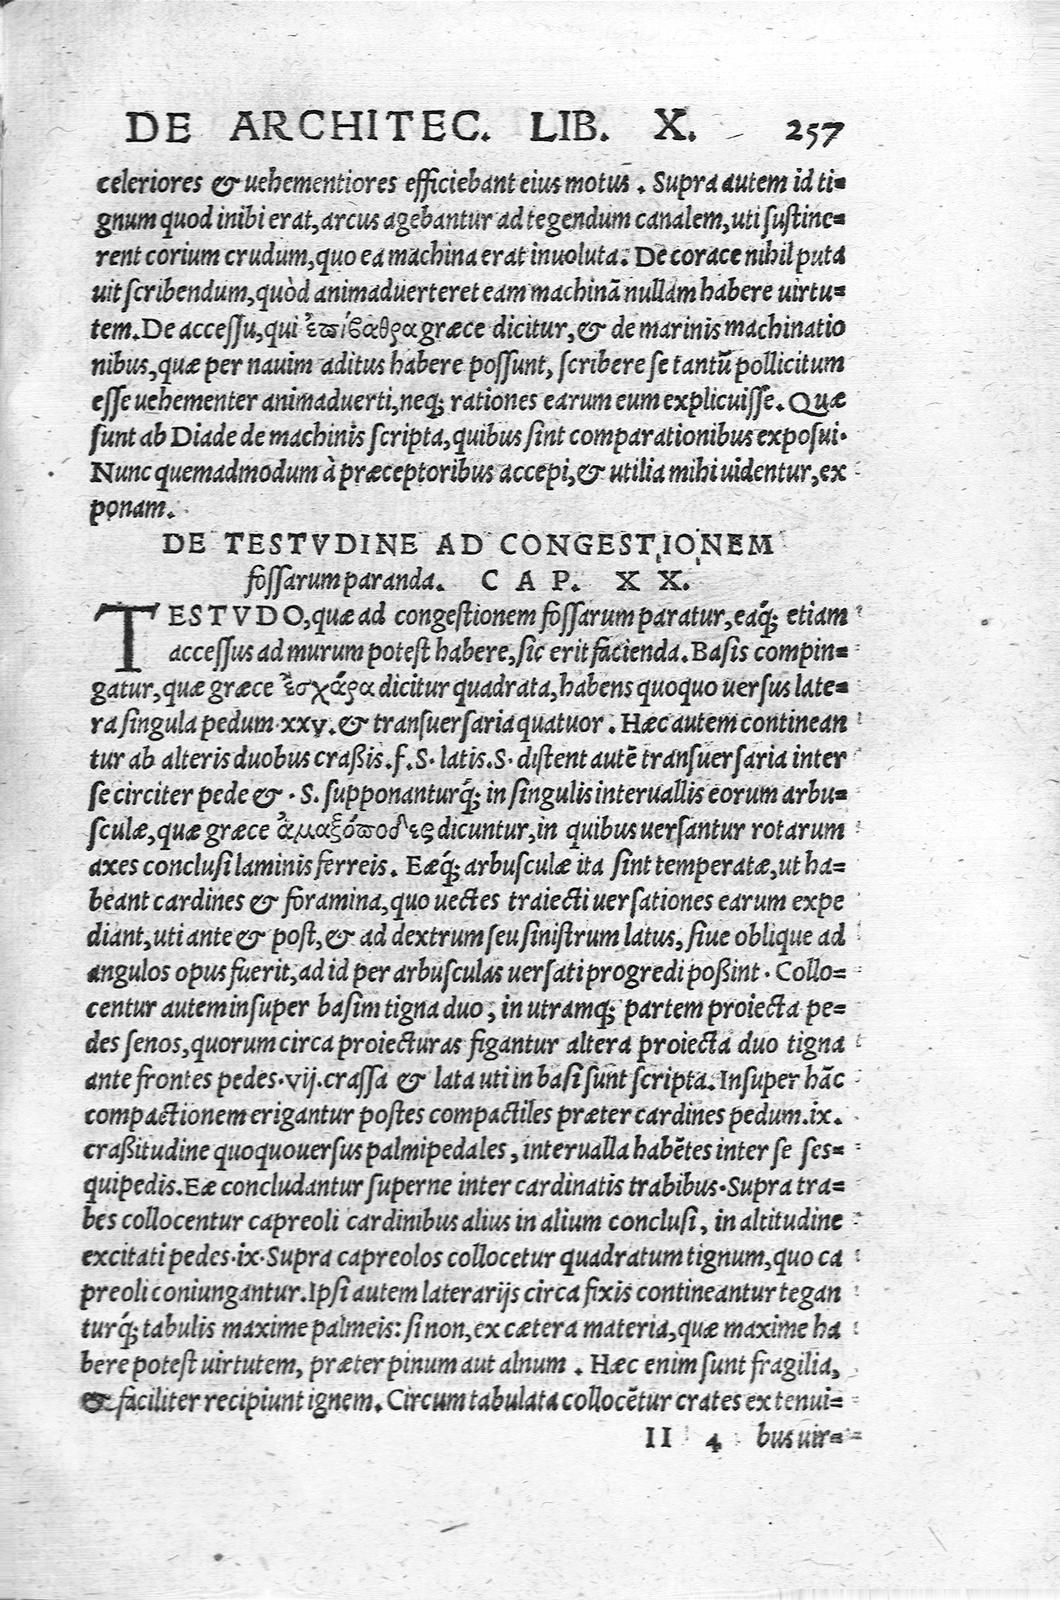 DE ARCHITEC. LIB. X. 257
celeriores & uehementiores efficiebant eius motus. Supra autem id ti=
gnum quod inibi erat, arcus agebantur ad tegendum canalem, uti sustine=
rent corium crudum, quo ea machina erat inuoluta. De corace nihil puta
uit scribendum, quòd animaduerteret eam machinā nullam habere uirtu=
tem. De accessu, qui ἐπίβαθρα græce dicitur, & de marinis machinatio
nibus, quæ per nauim aditus habere possunt, scribere se tantū pollicitum
esse uehementer animaduerti, neq; rationes earum eum explicuisse. Quæ
sunt ab Diade de machinis scripta, quibus sint comparationibus exposui.
Nunc quemadmodum à præceptoribus accepi, & utilia mihi uidentur, ex
ponam.
DE TESTVDINE AD CONGESTIONEM
fossarum paranda. CAP. XX.
TESTVDO, quæ ad congestionem fossarum paratur, eaq́; etiam
accessus ad murum potest habere, sic erit facienda. Basis compin=
gatur, quæ græce ἐσχάρα dicitur quadrata, habens quoquo uersus late=
ra singula pedum·xxv. & transuersaria quatuor. Hæc autem continean
tur ab alteris duobus craßis.f.S· latis.S· distent autē transuersaria inter
se circiter pede & ·S. supponanturq́; in singulis interuallis eorum arbu=
sculæ, quæ græce ἁμαξόποδες dicuntur, in quibus uersantur rotarum
axes conclusi laminis ferreis. Eæq́; arbusculæ ita sint temperatæ, ut ha=
beant cardines & foramina, quo uectes traiecti uersationes earum expe
diant, uti ante & post, & ad dextrum seu sinistrum latus, siue oblique ad
angulos opus fuerit, ad id per arbusculas uersati progredi poßint. Collo=
centur autem insuper basim tigna duo, in utramq; partem proiecta pe=
des senos, quorum circa proiecturas figantur altera proiecta duo tigna
ante frontes pedes·vij.crassa & lata uti in basi sunt scripta. Insuper hāc
compactionem erigantur postes compactiles præter cardines pedum.ix.
craßitudine quoquouersus palmipedales, interualla habētes inter se ses=
quipedis. Eæ concludantur superne inter cardinatis trabibus. Supra tra=
bes collocentur capreoli cardinibus alius in alium conclusi, in altitudine
excitati pedes·ix· Supra capreolos collocetur quadratum tignum, quo ca
preoli coniungantur. Ipsi autem laterarijs circa fixis contineantur tegan
turq́; tabulis maxime palmeis: si non, ex cætera materia, quæ maxime ha
bere potest uirtutem, præter pinum aut alnum. Hæc enim sunt fragilia,
& faciliter recipiunt ignem. Circum tabulata collocētur crates ex tenui=
II 4 bus uir=